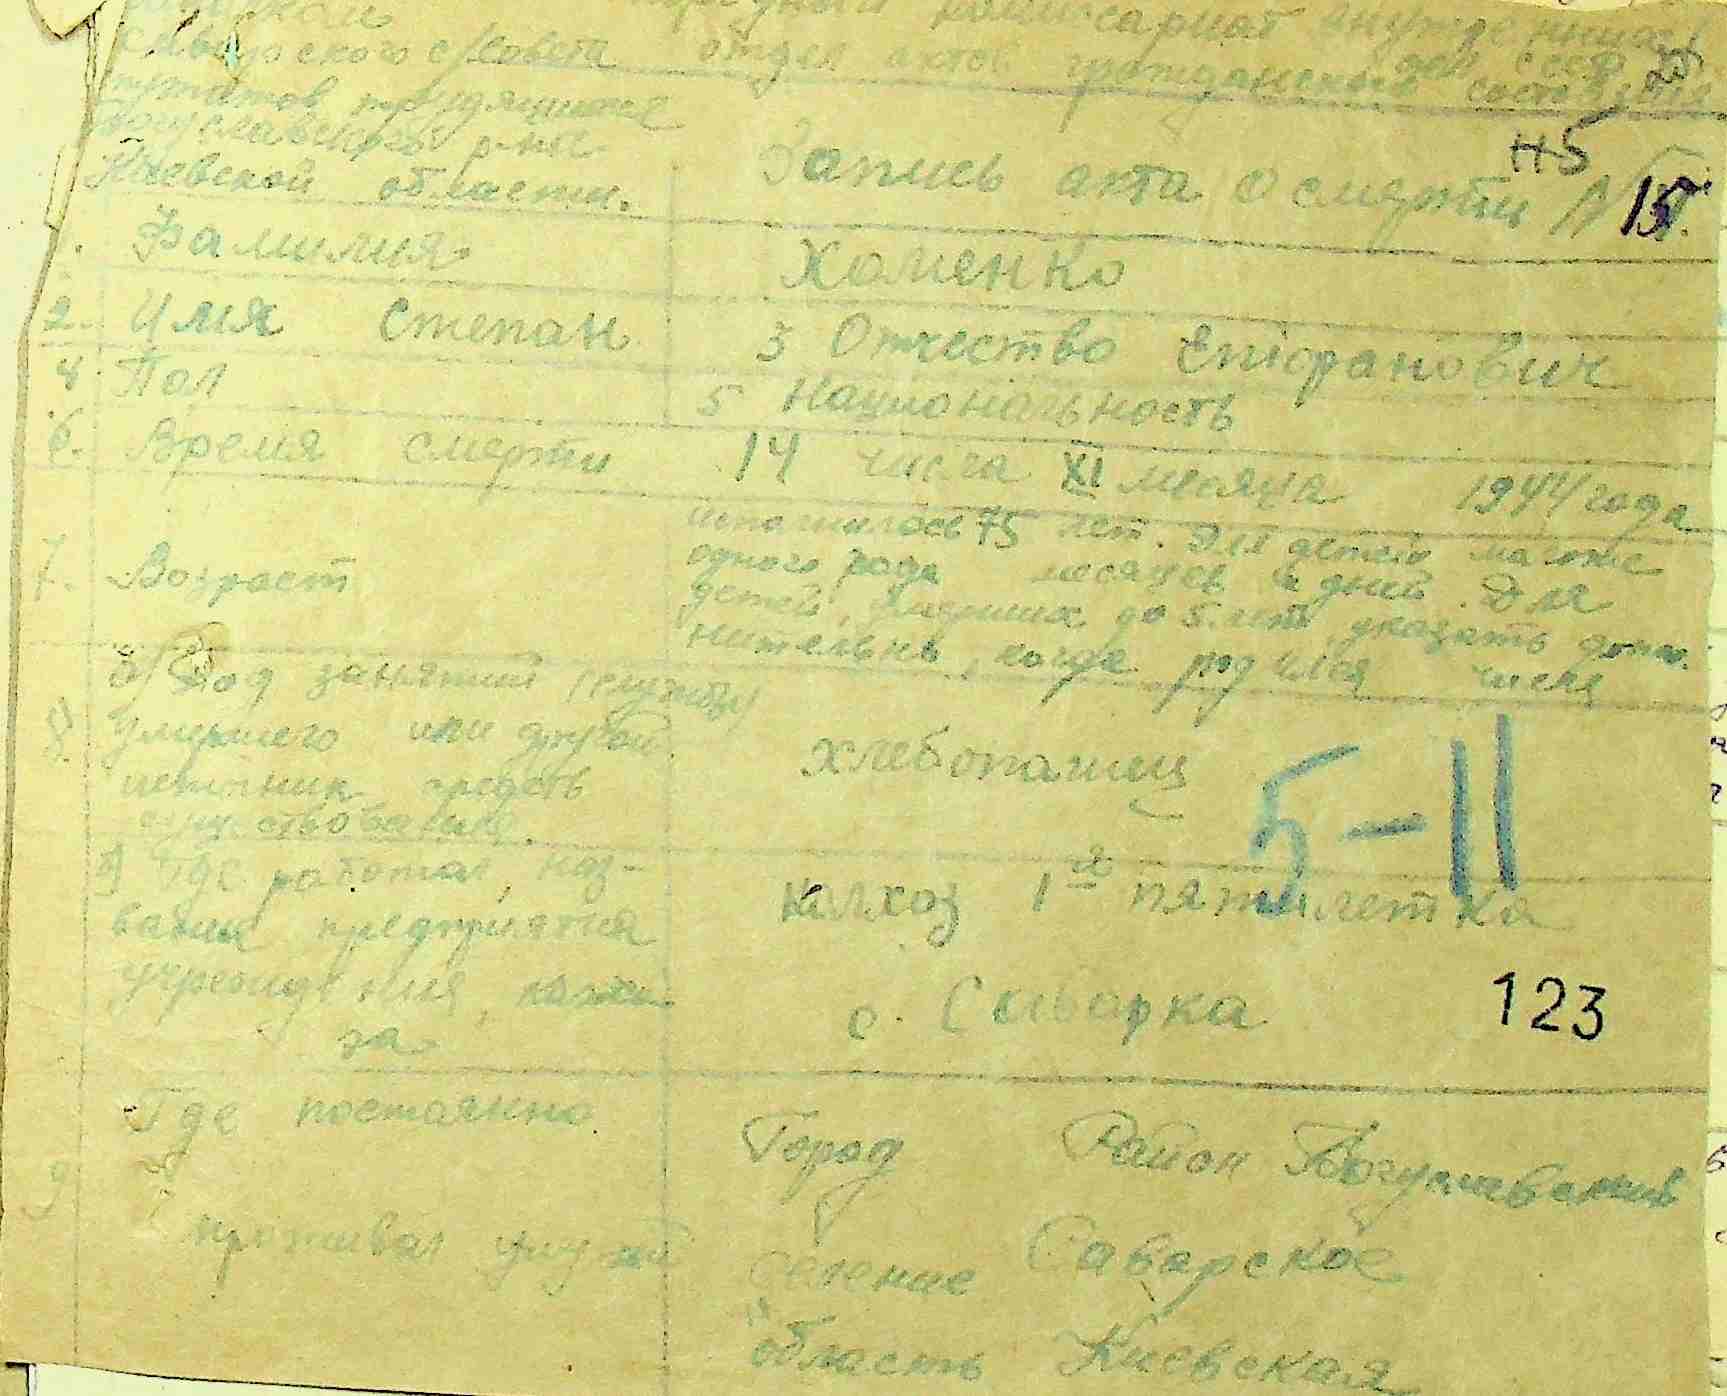 народный комиссариат внутренних
дел СССР
с/совета отдел актов гражданский состояния
трудящихся
Богуславского р-на
Киевской области. Запись акта о смерти N 15
Н5
1. Фамилия Хоменко
2. Имя Степан 3 Отчество Епіфанович
4 Пол 5 Национальность
6. Время смерти 14 числа XI месяца 1944 года
7. Возраст исполнилось 75 лет. Для детей моложе
одного года месяцев и дней. Для
детей, умерших до 5 лет указать допол.
нительно, когда родился числа
8. а) Род занятий (службы)
умершего или другой
источник средств
существования. хлебопашец
5-11
б) Где работал, наз-
вание предприятия
учреждения, колхо-
за колхоз 1я пятилетка
с. Саварка
123
9 Где постоянно
проживал Город Район Богуславский
селение Саварское
область Киевская